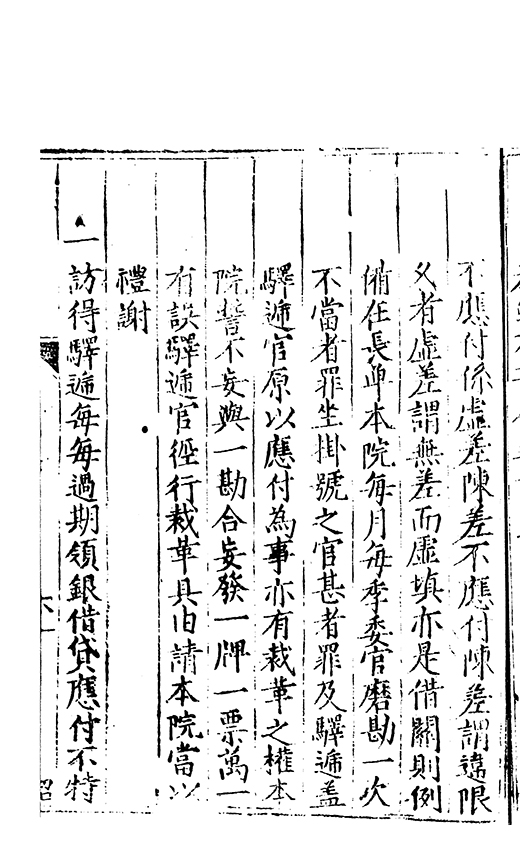 不應付係虛差陳差不應付陳差謂違限
久者虛差謂無差而虛填亦是借關則例
備任長單本院每月每季委官磨勘一次
不當者罪坐掛號之官甚者罪及驛遞蓋
驛遞官原以應付為事亦有裁革之權本
院誓不妄與一勘合妄發一牌一票萬一
有誤驛遞官徑行裁革具由請本院當以
禮謝
一訪得驛遞每每過期領銀借貸應付不特